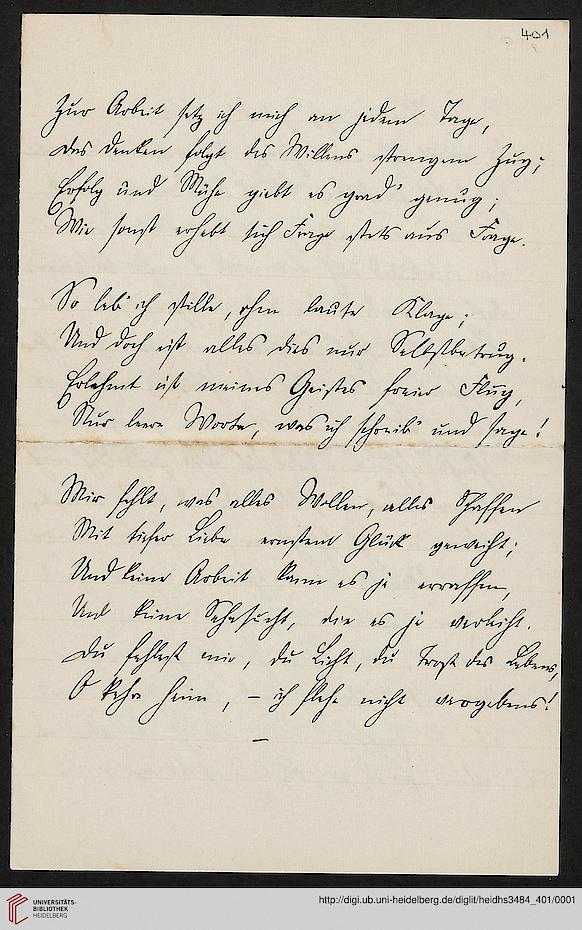 401
Zur Arbeit setz ich mich an jedem Tage,
Das Denken folgt des Willens strengem Zug;
Erfolg und Mühe giebt es grad' genug;
Wie sonst erhebt sich Frage stets aus Frage.
So leb' ich stille, ohne laute Klage;
Und doch ist alles dies nur Selbstbetrug.
Erlahmt ist meines Geistes freier Flug,
Nur leere Worte, was ich schreib' und sage!
Mir fehlt, was alles Wollen, alles Schaffen
Mit tiefer Liebe ernstem Glück geweiht;
Und keine Arbeit kann es je erraffen,
Und keine Sehnsucht, die es je verleiht.
Du fehlest mir, du Licht, du Trost des Lebens,
O kehre heim, – ich flehe nicht vergebens!
–
UNIVERSITÄTS-
BIBLIOTHEK
HEIDELBERG
http://digi.ub.uni-heidelberg.de/diglit/heidhs3484_401/0001